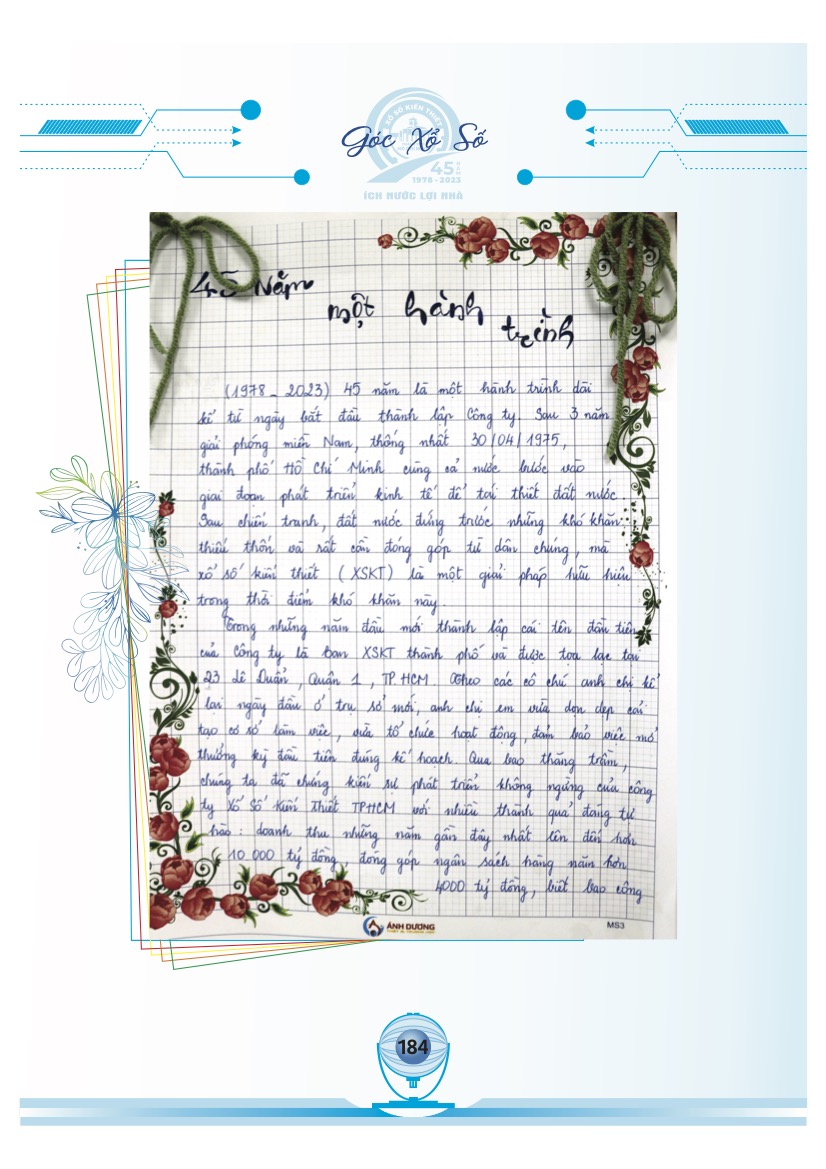 XỔ SỐ KIẾN THIẾT
Góc Xổ Số
45 NĂM
1978 - 2023
ÍCH NƯỚC LỢI NHÀ
45 Năm
một hành
trình
(1978 - 2023) 45 năm là một hành trình dài
kể từ ngày bắt đầu thành lập Công ty. Sau 3 năm
giải phóng miền Nam, thống nhất 30/04/1975,
thành phố Hồ Chí Minh cùng cả nước bước vào
giai đoạn phát triển kinh tế để tái thiết đất nước.
Sau chiến tranh, đất nước đứng trước những khó khăn
thiếu thốn và rất cần đóng góp từ dân chúng, mà
xổ số kiến thiết (XSKT) là một giải pháp hữu hiệu
trong thời điểm khó khăn này.
Trong những năm đầu mới thành lập cái tên đầu tiên
của Công ty là Ban XSKT thành phố và được tọa lạc tại
23 Lê Duẩn, Quận 1, TP HCM. Theo các cô chú anh chị kể
lại ngày đầu ở trụ sở mới, anh chị em vừa dọn dẹp cải
tạo cơ sở làm việc, vừa tổ chức hoạt động, đảm bảo việc mở
thưởng kỳ đầu tiên đúng kế hoạch. Qua bao thăng trầm,
chúng ta đã chứng kiến sự phát triển không ngừng của công
ty Xổ Số Kiến Thiết TPHCM với nhiều thành quả đáng tự
hào: doanh thu những năm gần đây nhất lên đến hơn
10 000 tỷ đồng, đóng góp ngân sách hàng năm hơn
4000 tỷ đồng, biết bao công
ÁNH DƯƠNG
MS3
184